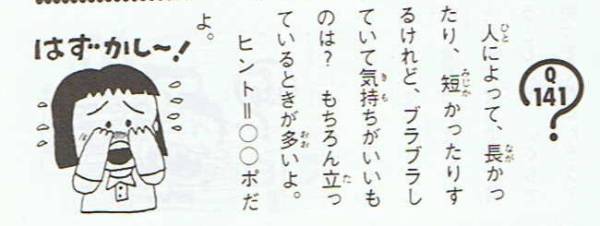 Q
141
人によって、長かっ
たり、短かったりす
るけれど、ブラブラし
ていて気持ちがいいも
のは？　もちろん立っ
ているときが多いよ。
ヒント＝○○ポだ
よ。
はずかし〜！